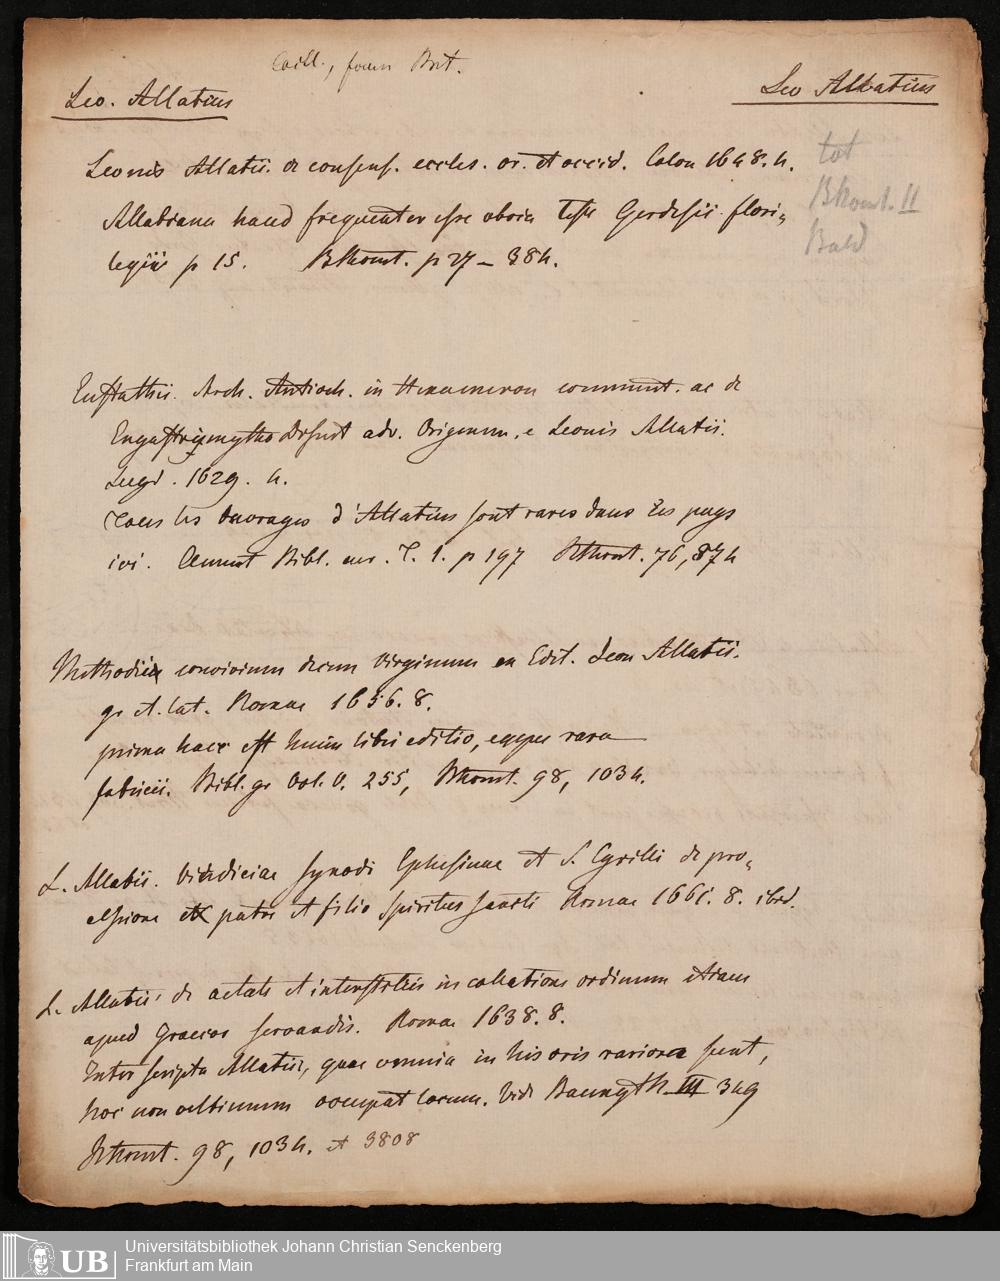 Leo. Allatius
Leo Allatius
Leonis Allatii. de consens. eccles. or. et occid. Colon 1648. 4.
Allatiana haud frequenter esse obvia Gerdesii flori„
legiis p 15. p 27 — 384.
tot
II
Eustathii. Arch. Antioch. in Hexaemeron comment. ac de
Engastrimytho adv. Origenem, e Leonis Allatii.
Lugd. 1629. 4.
Tous les ouvrages d'Allatius sont rares dans les pays
ici. Clement Bibl. cur. T. 1. p 197 76, 874
Methodii convivium decem virginum ex Edit. Leon Allatii.
gr et. lat. Romae 1656. 8.
prima haec est hujus libri editio, eaque rara
Fabricii. Bibl. gr Vol. V. 255, 98, 1034.
L. Allatii. Vindiciae synodi Ephesinae et S. Cyrilli de pro„
cessione ex patre et filio Spiritus Sancti Romae 1661. 8. ibid.
L. Allatii de aetate et interstitiis in collatione ordinum etiam
apud Graecos servandis. Romae 1638. 8.
Inter scripta Allatii, quae omnia in his oris rariora sunt,
hoc non ultimum occupat locum. Vide III 349
98, 1034. et 3808
UB
Universitätsbibliothek Johann Christian Senckenberg
Frankfurt am Main